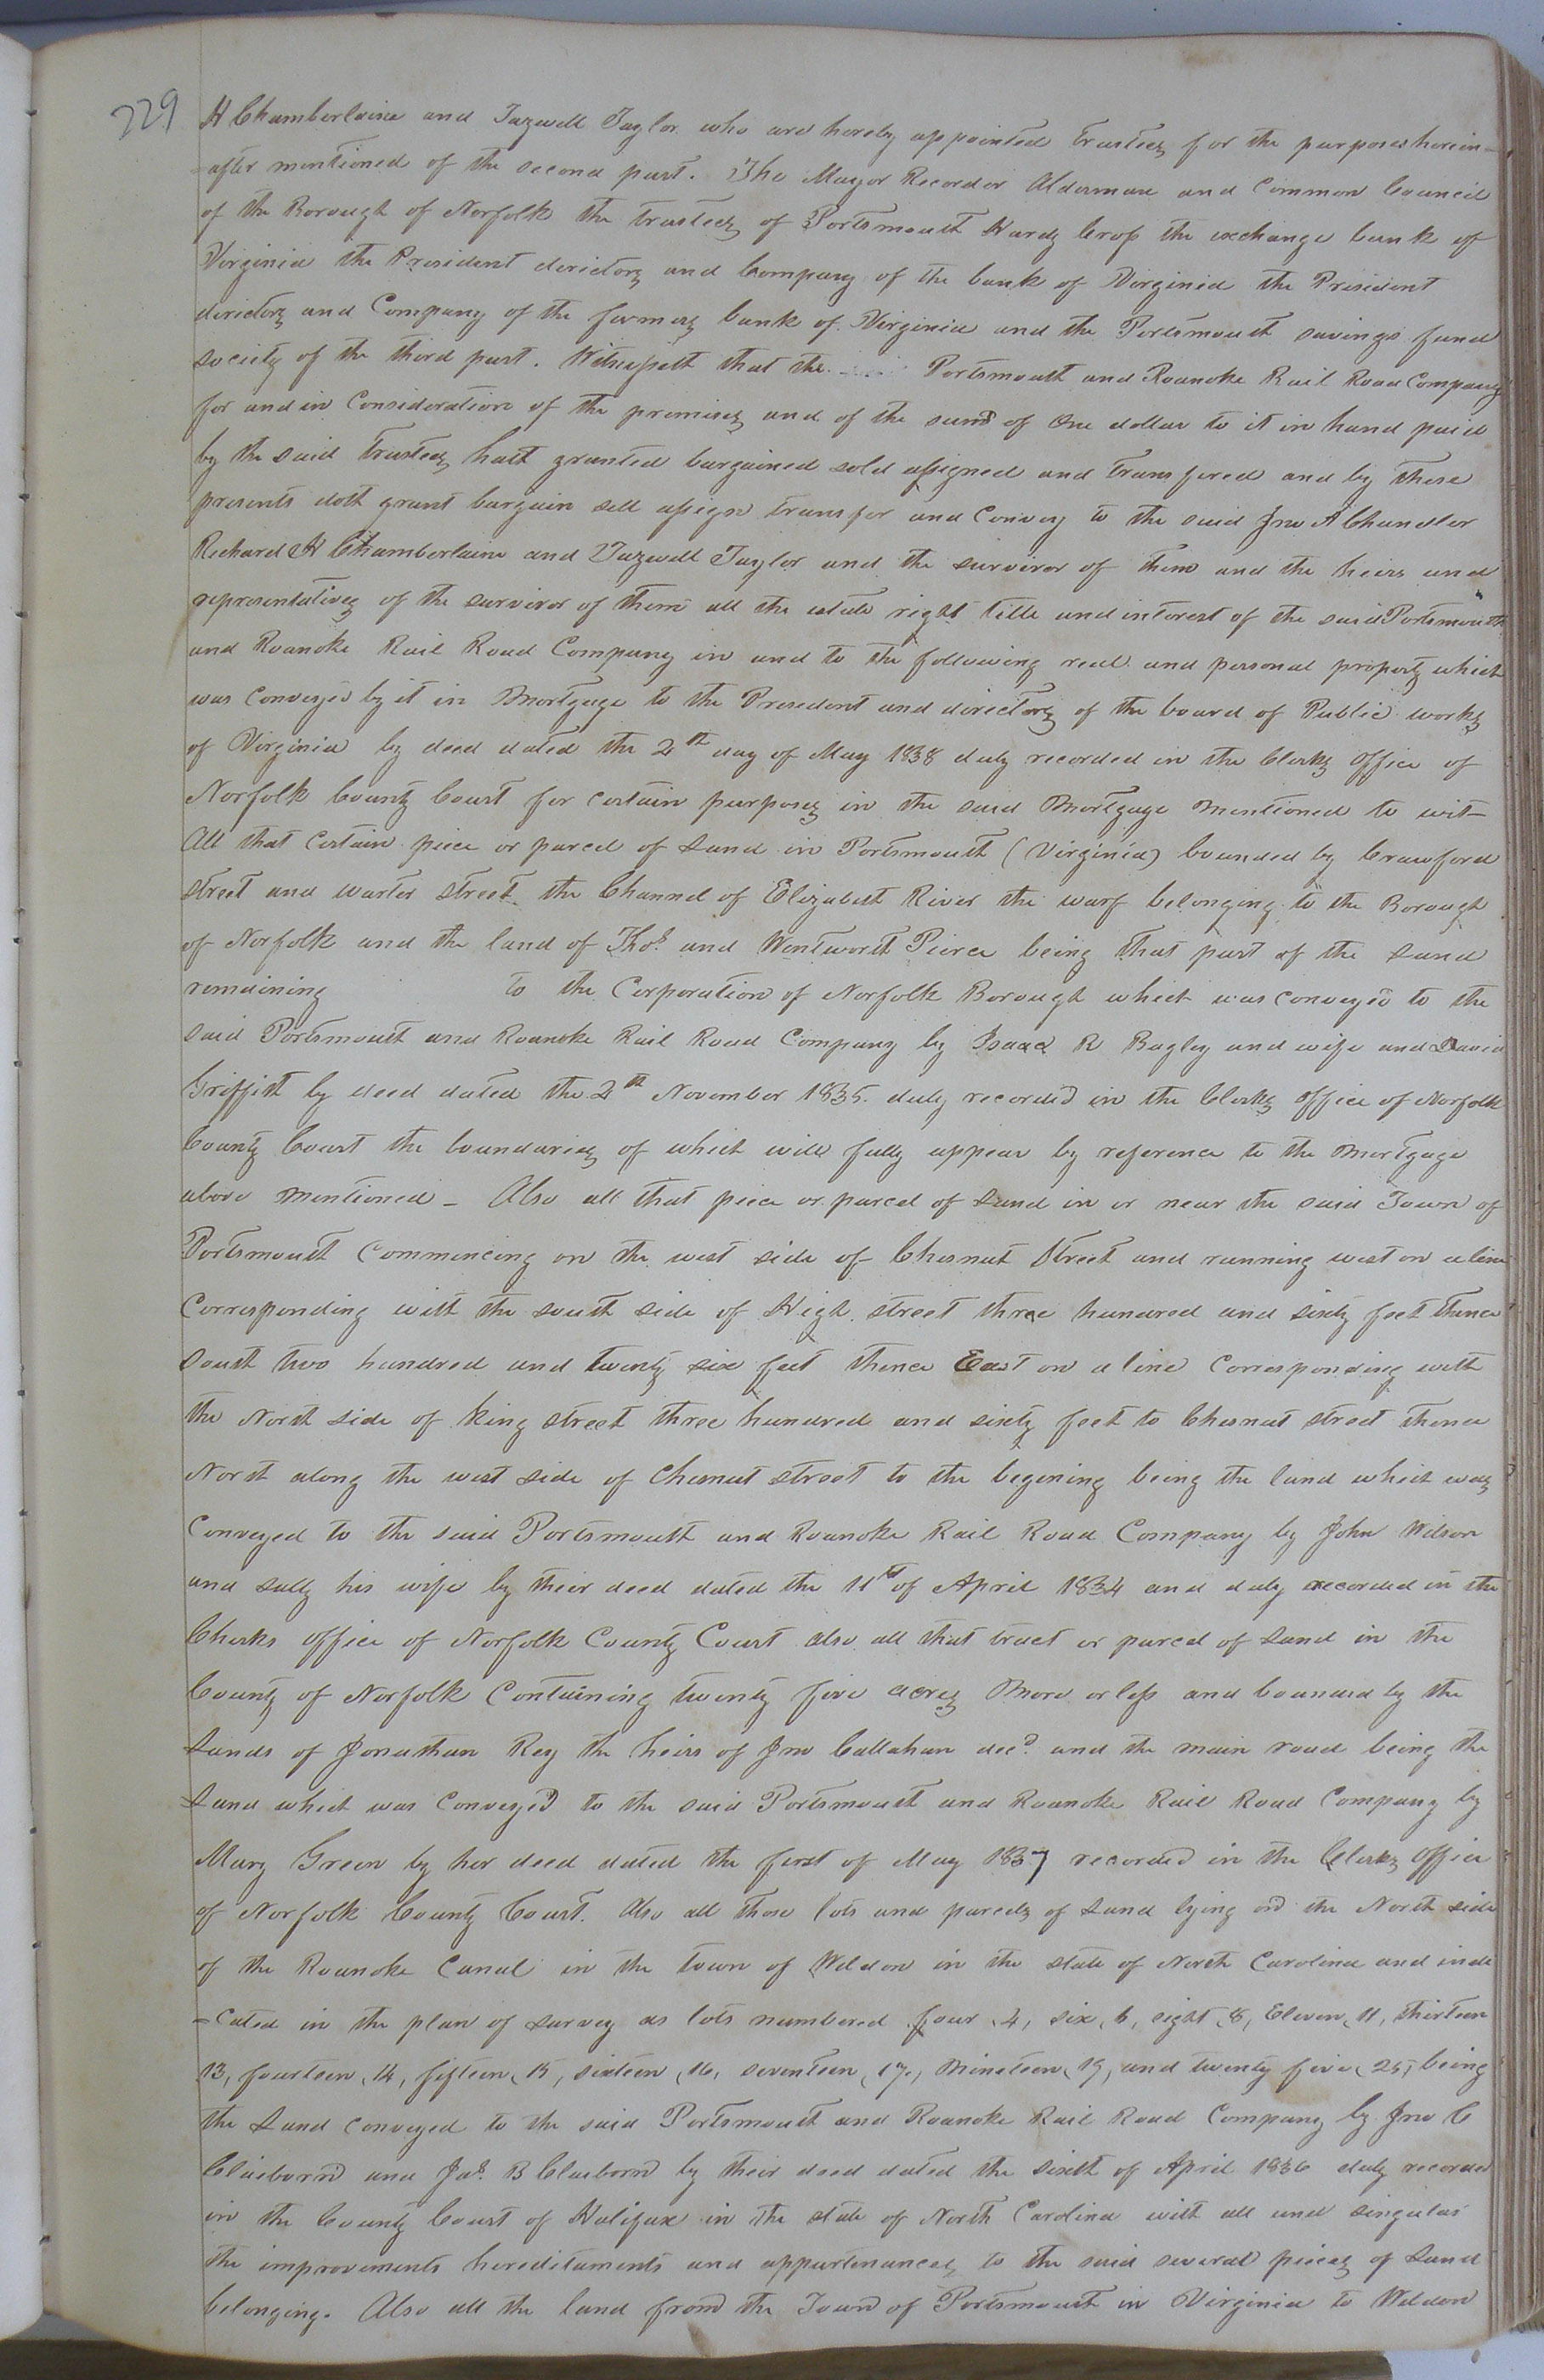 229
H Chamberlaine and Tazwell Taylor who are hereby appointed Trustees for the purposes herein-
-after mentioned of the second part. The Mayor Recorder Alderman and Common Council
of the Borough of Norfolk the trustees of Portsmouth Hardy Cross the exchange bank of
Virginia the President directors and Company of the bank of Virginia the President
directors and Company of the farmers bank of Virginia and the Portsmouth savings fund
society of the third part. Witnesseth that the Portsmouth and Roanoke Rail Road Company
for and in Consideration of the premises and of the sum of One dollar to it in hand paid
by the said Trustees hath granted bargained sold assigned and transfered and by these
presents doth grant bargain sell assign transfer and Convey to the said Jno A Chandler
Richard H Chamberlaine and Tazwell Taylor and the survivor of them and the heirs and
representatives of the survivor of them all the estate right title and interest of the said Portsmouth
and Roanoke Rail Road Company in and to the following real and personal property which
was Conveyed by it in Mortgage to the President and directors of the board of Public works
of Virginia by deed dated the 2th day of May 1838 duly recorded in the Clerks Office of
Norfolk County Court for certain purposes in the said Mortgage Mentioned to wit-
All that certain piece or parcel of Land in Portsmouth (Virginia) bounded by Crawford
street and warter street the Channel of Elizabeth River the warf belonging to the Borough
of Norfolk and the land of Thos and Wentworth Pierce being that part of the Land
remaining to the Corporation of Norfolk Borough which was conveyed to the
said Portsmouth and Roanoke Rail Road Company by Isaac R Bagley and wife and David
Griffith by deed dated the 2th November 1835. duly recorded in the Clerks office of Norfolk
County Court the boundaries of which will fully appear by reference to the Mortgage
above Mentioned - Also all that piece or parcel of Land in or near the said Town of
Portsmouth Commencing on the west side of Chesnut Street and running west on a line
Corresponding with the south side of High street three hundred and sixty feet thence
South two hundred and twenty six feet thence East on a line Corresponding with
the North side of King street three hundred and sixty feet to Chesnut street thence
North along the west side of Chesnut street to the begining being the land which was
Conveyed to the said Portsmouth and Roanoke Rail Road Company by John Wilson
and Sally his wife by their deed dated the 11th of April 1834 and duly recorded in the
Clerks office of Norfolk County Court also all that tract or parcel of Land in the
County of Norfolk Containing twenty five acres More or less and bounded by the
Lands of Jonathan Rey the heirs of Jno Callahan decd. and the main road being the
Land which was Conveyed to the said Portsmouth and Roanoke Rail Road Company by
Mary Green by her deed dated the first of May 1837 recorded in the Clerks office
of Norfolk County Court. Also all those lots and parcels of Land lying on the North side
of the Roanoke Canal in the town of Weldon in the state of North Carolina and indi
-cated in the plan of survey as lots numbered four, 4, six, 6, eight, 8, Eleven, 11, thirteen
13, fourteen, 14, fifteen, 15, sixteen, 16, seventeen, 17, Nineteen, 19, and twenty five, 25, being
the Land conveyed to the said Portsmouth and Roanoke Rail Road Company by Jno C
Claeborn and Jas. B Claeborn by their deed dated the sixth of April 1836 duly recorded
in the County Court of Halifax in the state of North Carolina with all and singular
the improvements hereditaments and appurtenances to the said several pieces of Land
belonging. Also all the land from the Town of Portsmouth in Virginia to Weldon